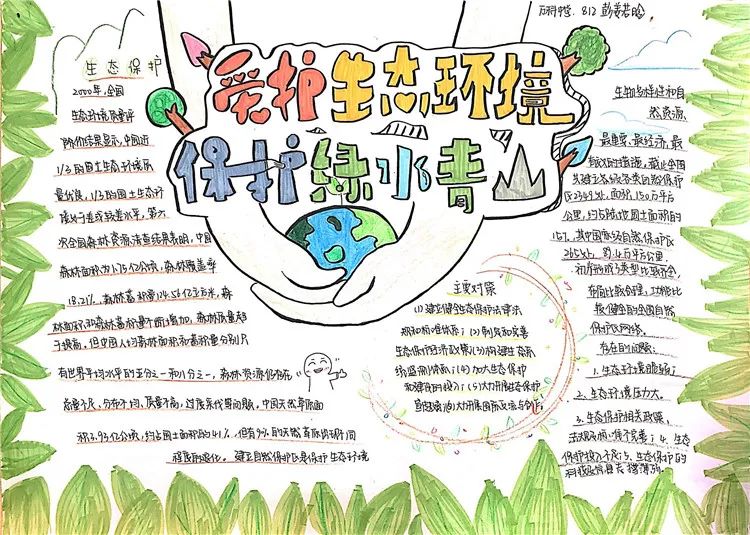 万科中学. 812 彭姜若晗
爱护生态环境
保护绿水青山
生态保护
2000年,全国
生态环境质量评
价结果显示,中国近
1/3的国土生态环境质
量优良,1/3的国土生态环
境处于差或较差水平,第六
次全国森林资源清查结果表明,中国
森林面积为1.75亿公顷,森林覆盖率
18.21%,森林蓄积量124.56亿立方米,森
林面积和森林蓄积量不断增加,森林质量趋
于提高,但中国人均森林面积和蓄积量分别只
有世界平均水平的五分之一和八分之一,森林资源仍存在
总量不足,分布不均,质量不高,过度采伐等问题,中国天然草原面
积3.93亿公顷,约占国土面积的41%,但有9%的天然草原出现不同
程度的退化。建立自然保护区是保护生态环境
主要对策
(1)建立健全生态保护法律法
规和标准体系;(2)制定和完善
生态保护经济政策;(3)构建生态系
统监测体系;(4)加大生态保护
和建设的投入;(5)大力开展生态保护
宣传教育;(6)大力开展国际交流与合作
生物多样性和自
然资源.
最重要、最经济、最
有效的措施,截止全国
共建立各级各类自然保护
区2349处,面积150万平方
公里,约占陆地国土面积的
15%,其中国家级自然保护区
265处,约
初步形成了类型比较齐全,
布局比较合理,功能比
较健全的全国自然
保护区网络.
存在的问题:
1.生态环境脆弱;
2.生态环境压力大。
3.生态保护相关政策,
法规和标准不完善;4.生态
保护投入不足;5.生态保护的
科技支撑